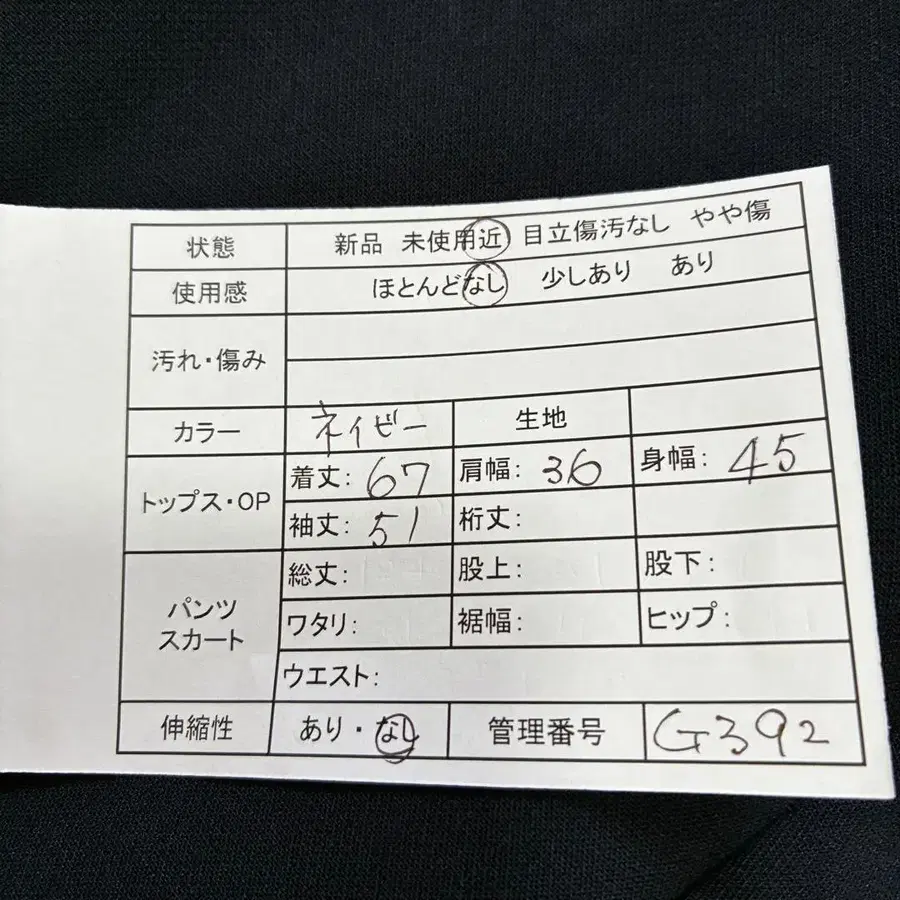 状態 新品 未使用近 目立傷汚なし やや傷
使用感 ほとんどなし 少しあり あり
汚れ・傷み
カラー ネイビー 生地
トップス・OP 着丈: 67 肩幅: 36 身幅: 45
袖丈: 51 桁丈:
パンツ スカート 総丈: 股上: 股下:
ワタリ: 裾幅: ヒップ:
ウエスト:
伸縮性 あり・なし 管理番号 G392